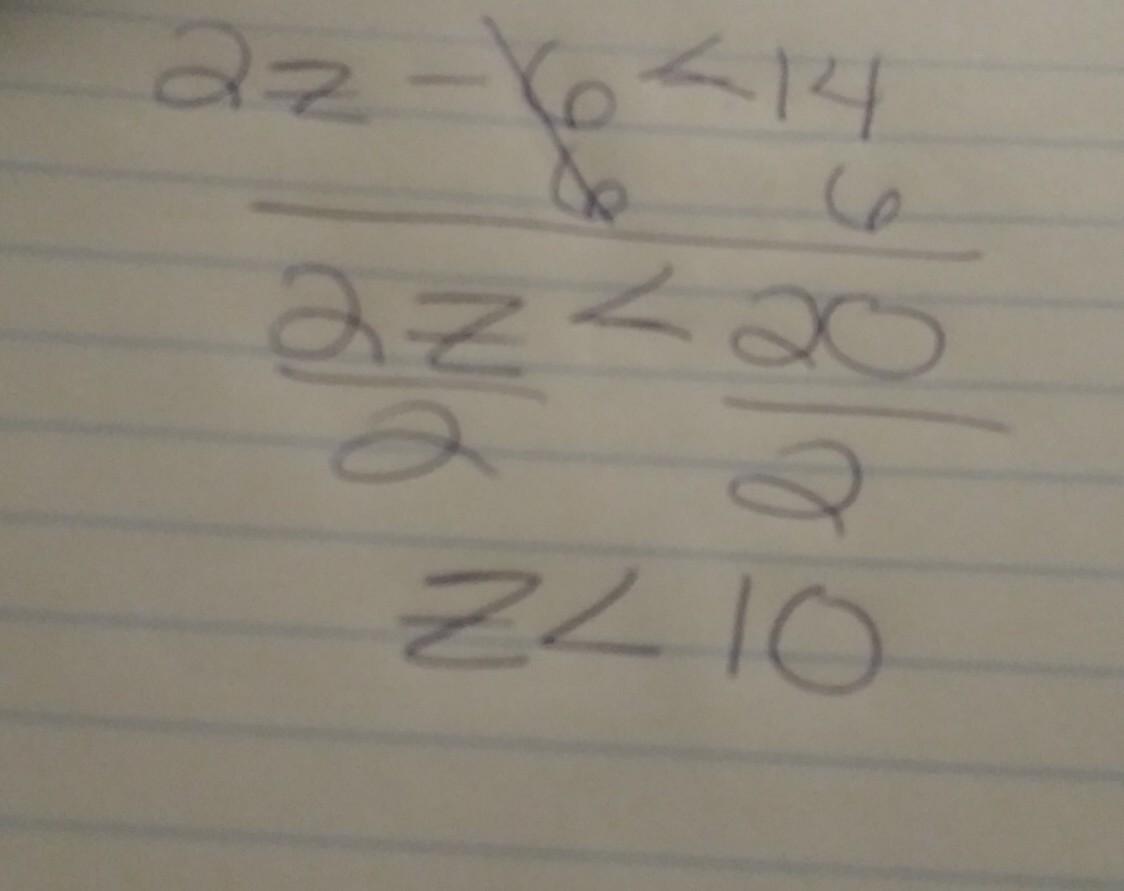 2z - 6 < 14
6 6
2z < 20
2 2
z < 10